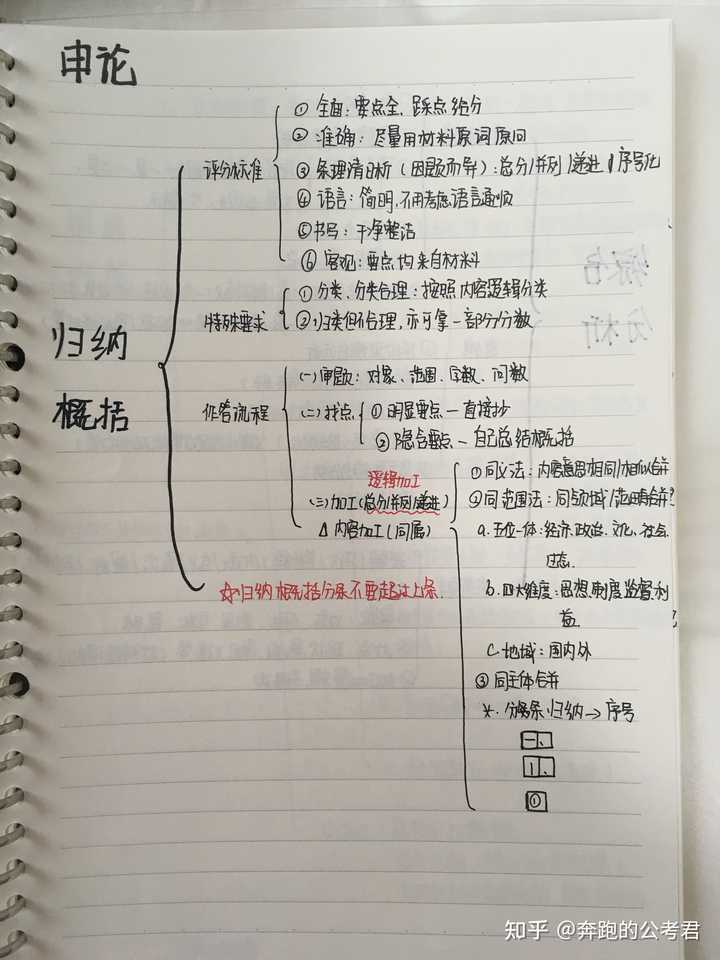 申论
归纳
概括
评分标准
① 全面：要点全、踩点给分
② 准确：尽量用材料原词原句
③ 条理清晰（因题而异）：总分/并列/递进 序号化
④ 语言：简明，不用考虑语言通顺
⑤ 书写：干净整洁
⑥ 客观：要点均来自材料
特殊要求
① 分类、分类合理：按照内容逻辑分类
② 归类但不合理，亦可拿一部分分数
作答流程
(一) 审题：对象、范围、字数、问数
(二) 找点
① 明显要点一直接抄
② 隐含要点一自己总结概括
逻辑加工
(三) 加工（总分/并列/递进）
△ 内容加工（同属）
① 同义法：内容意思相同/相似合并
② 同范围法：同领域/范畴合并
a. 五位一体：经济、政治、文化、社会、
生态
b. 四大维度：思想、制度、监督、利
益
c. 地域：国内外
③ 同主体合并
*. 分条归纳→序号
一、
1、
①
☆归纳概括分条不要超过上条
知乎 @奔跑的公考君